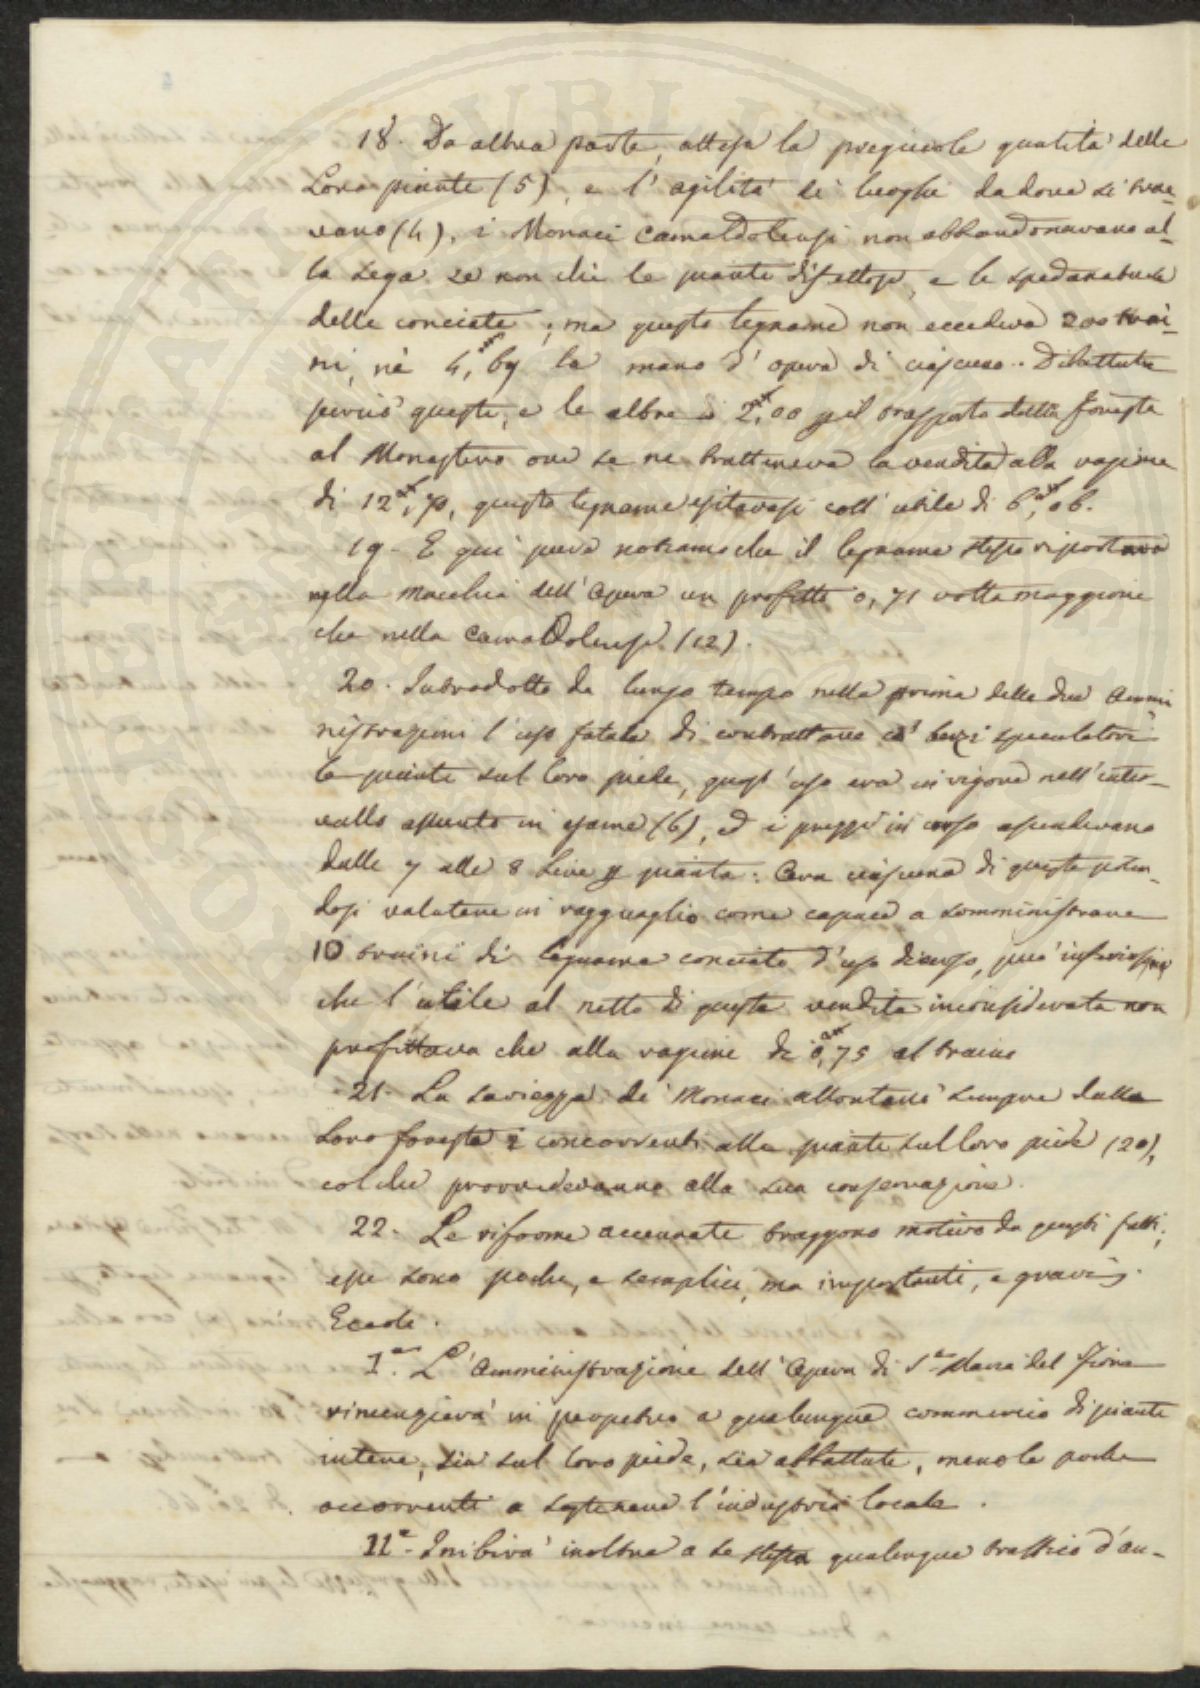 18. Da altra parte, attesa la pregievole qualità delle
Loro piante (5), e l'agilità de' luoghi da dove si trae-
vano (4), i Monaci Camaldolensi non abbandonavano al-
la sega se non che le piante difettose, e le
delle conciate; ma questo legname non eccedeva 200 trai-
ni, nè 4, 69 la mano d'opera di ciascuno. Dibattute
perciò queste, e le altre di 2, 00 pel trasporto dalla foresta
al Monastero ove se ne tratteneva la vendita alla ragione
di 12, 70, questo legname esitavasi coll'utile di 6, 06.
19. E qui pure notiamo che il legname stesso riportava
nella Macchia dell'Opera un profitto 0,71 volta maggiore
che nella Camaldolense (12).
20. Introdotto da lungo tempo nella prima delle due Ammi
nistrazioni l'uso fatale di contrattare co' terzi speculatori
le piante sul loro piede, quest'uso era in vigore nell'inter-
vallo assunto in esame (6), ed i prezzi in corso ascendevano
dalle 7 alle 8 Lire p pianta: Ora ciascuna di queste poten-
dosi valutare in ragguaglio come capace a somministrare
10 traini di legname conciato d'uso diverso, può inferirsene
che l'utile al netto di questa vendita inconsiderata non
profittava che alla ragione di 0, 75 al traino
21. La saviezza de' Monaci allontanò sempre dalla
Loro foresta i concorrenti alle piante sul loro piede (20),
col che provvederanno alla sua conservazione.
22. Le riforme accennate traggono motivo da questi fatti;
esse sono poche, e semplici, ma importanti, e gravi.
Eccole.
1ª. L'Amministrazione dell'Opera di Sta Maria del Fiore
rinunzierà in perpetuo a qualunque commercio di piante
intere, sia sul loro piede, sia abbattute, meno le poche
occorrenti a sostenere l'industria locale.
11ª. Inibirà inoltre a se stessa qualunque traffico d'an-